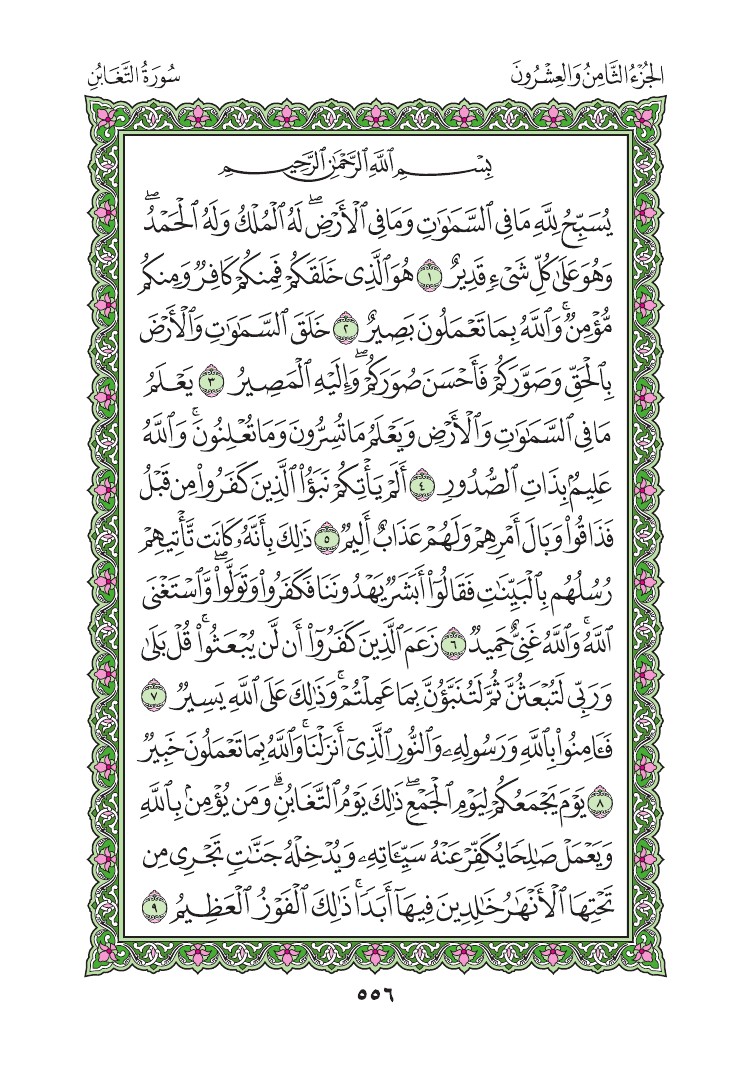 الجُزْءُ الثَّامِنُ وَالعِشْرُونَ
سُورَةُ التَّغَابُنِ
بِسْمِ ٱللَّهِ ٱلرَّحْمَٰنِ ٱلرَّحِيمِ
يُسَبِّحُ لِلَّهِ مَا فِى ٱلسَّمَٰوَٰتِ وَمَا فِى ٱلْأَرْضِۖ لَهُ ٱلْمُلْكُ وَلَهُ ٱلْحَمْدُۖ
وَهُوَ عَلَىٰ كُلِّ شَىْءٍ قَدِيرٌ ١ هُوَ ٱلَّذِى خَلَقَكُمْ فَمِنكُمْ كَافِرٌ وَمِنكُم
مُّؤْمِنٌۚ وَٱللَّهُ بِمَا تَعْمَلُونَ بَصِيرٌ ٢ خَلَقَ ٱلسَّمَٰوَٰتِ وَٱلْأَرْضَ
بِٱلْحَقِّ وَصَوَّرَكُمْ فَأَحْسَنَ صُوَرَكُمْۖ وَإِلَيْهِ ٱلْمَصِيرُ ٣ يَعْلَمُ
مَا فِى ٱلسَّمَٰوَٰتِ وَٱلْأَرْضِ وَيَعْلَمُ مَا تُسِرُّونَ وَمَا تُعْلِنُونَۚ وَٱللَّهُ
عَلِيمٌۢ بِذَاتِ ٱلصُّدُورِ ٤ أَلَمْ يَأْتِكُمْ نَبَؤُا۟ ٱلَّذِينَ كَفَرُوا۟ مِن قَبْلُ
فَذَاقُوا۟ وَبَالَ أَمْرِهِمْ وَلَهُمْ عَذَابٌ أَلِيمٌ ٥ ذَٰلِكَ بِأَنَّهُۥ كَانَت تَّأْتِيهِمْ
رُسُلُهُم بِٱلْبَيِّنَٰتِ فَقَالُوٓا۟ أَبَشَرٌ يَهْدُونَنَا فَكَفَرُوا۟ وَتَوَلَّوا۟ۖ وَّٱسْتَغْنَى
ٱللَّهُۚ وَٱللَّهُ غَنِىٌّ حَمِيدٌ ٦ زَعَمَ ٱلَّذِينَ كَفَرُوٓا۟ أَن لَّن يُبْعَثُوا۟ۚ قُلْ بَلَىٰ
وَرَبِّى لَتُبْعَثُنَّ ثُمَّ لَتُنَبَّؤُنَّ بِمَا عَمِلْتُمْۚ وَذَٰلِكَ عَلَى ٱللَّهِ يَسِيرٌ ٧
فَـَٔامِنُوا۟ بِٱللَّهِ وَرَسُولِهِۦ وَٱلنُّورِ ٱلَّذِىٓ أَنزَلْنَاۚ وَٱللَّهُ بِمَا تَعْمَلُونَ خَبِيرٌ
٨ يَوْمَ يَجْمَعُكُمْ لِيَوْمِ ٱلْجَمْعِۖ ذَٰلِكَ يَوْمُ ٱلتَّغَابُنِۗ وَمَن يُؤْمِنۢ بِٱللَّهِ
وَيَعْمَلْ صَٰلِحًا يُكَفِّرْ عَنْهُ سَيِّـَٔاتِهِۦ وَيُدْخِلْهُ جَنَّٰتٍ تَجْرِى مِن
تَحْتِهَا ٱلْأَنْهَٰرُ خَٰلِدِينَ فِيهَآ أَبَدًاۚ ذَٰلِكَ ٱلْفَوْزُ ٱلْعَظِيمُ ٩
٥٥٦